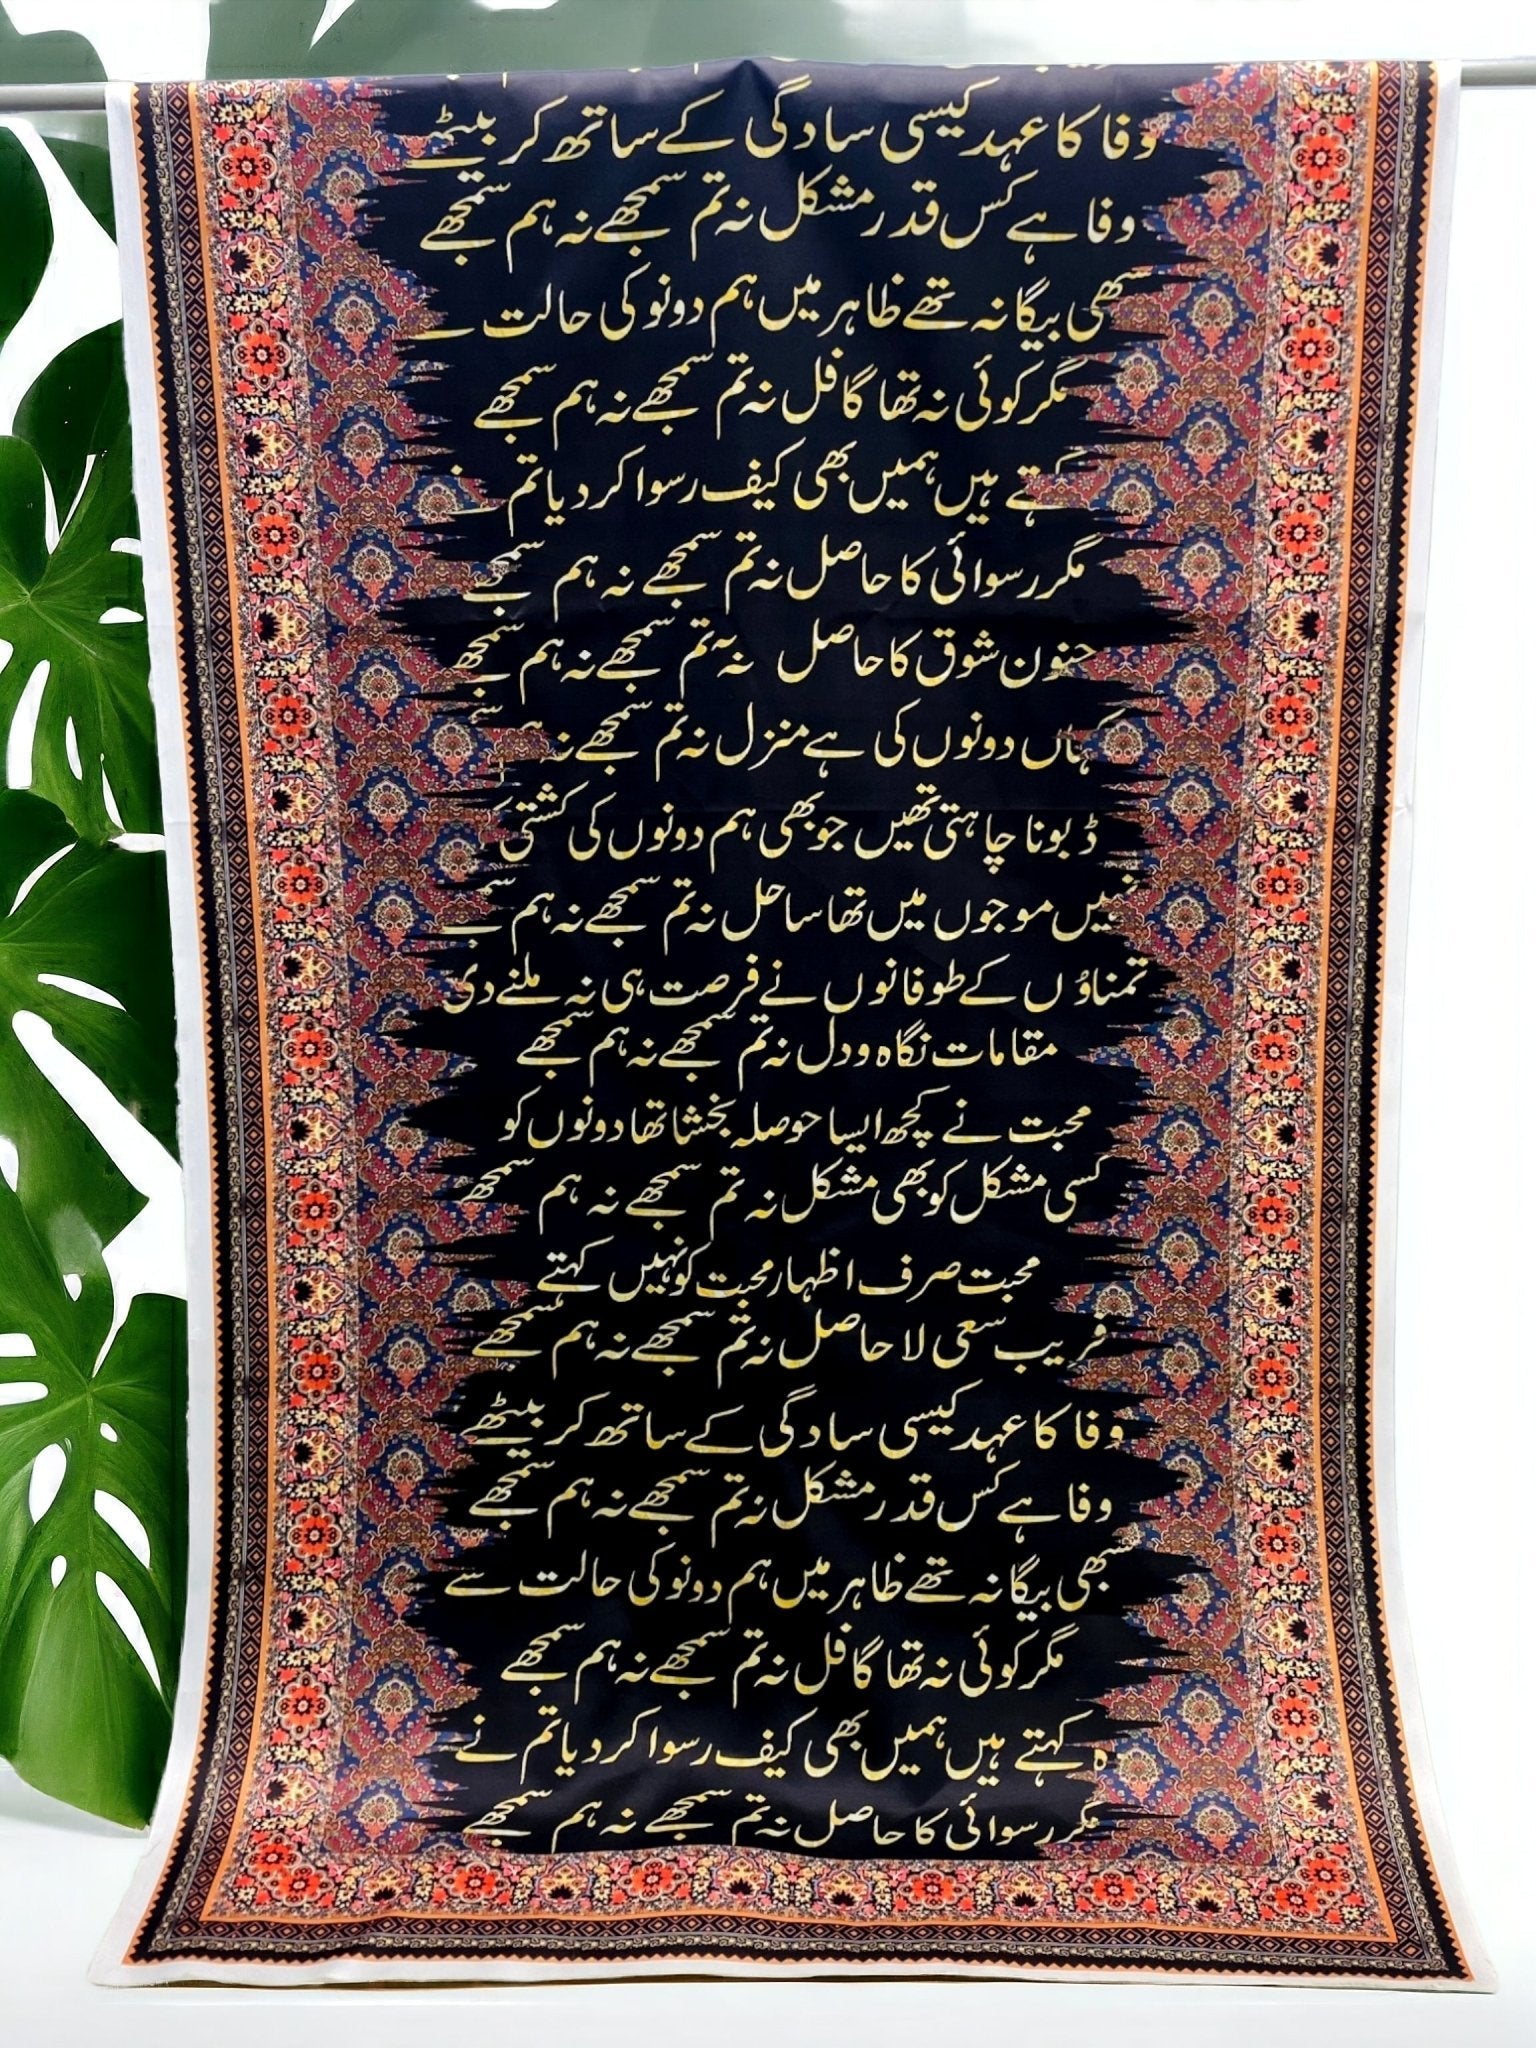 وفا کا عہد کیسی سادگی کے ساتھ کر بیٹھے
وفا ہے کس قدر مشکل نہ تم سمجھے نہ ہم سمجھے
سبھی بیگانہ تھے ظاہر میں ہم دونو کی حالت سے
مگر کوئی نہ تھا گافل نہ تم سمجھے نہ ہم سمجھے
کہتے ہیں ہمیں بھی کیف رسوا کر دیا تم
مگر رسوائی کا حاصل نہ تم سمجھے نہ ہم سمجھے
جنون شوق کا حاصل نہ تم سمجھے نہ ہم سمجھے
کہاں دونوں کی ہے منزل نہ تم سمجھے نہ ہم
ڈبونا چاہتی تھیں جو بھی ہم دونوں کی کشتی
نہیں موجوں میں تھا ساحل نہ تم سمجھے نہ ہم سمجھے
تمناؤں کے طوفانوں نے فرصت ہی نہ ملنے دی
مقامات نگاہ و دل نہ تم سمجھے نہ ہم سمجھے
محبت نے کچھ ایسا حوصلہ بخشا تھا دونوں کو
کسی مشکل کو بھی مشکل نہ تم سمجھے نہ ہم سمجھے
محبت صرف اظہار محبت کو نہیں کہتے
فریب سعی لا حاصل نہ تم سمجھے نہ ہم سمجھے
وفا کا عہد کیسی سادگی کے ساتھ کر بیٹھے
وفا ہے کس قدر مشکل نہ تم سمجھے نہ ہم سمجھے
سبھی بیگانہ تھے ظاہر میں ہم دونو کی حالت سے
مگر کوئی نہ تھا گافل نہ تم سمجھے نہ ہم سمجھے
ہ کہتے ہیں ہمیں بھی کیف رسوا کر دیا تم نے
مگر رسوائی کا حاصل نہ تم سمجھے نہ ہم سمجھے